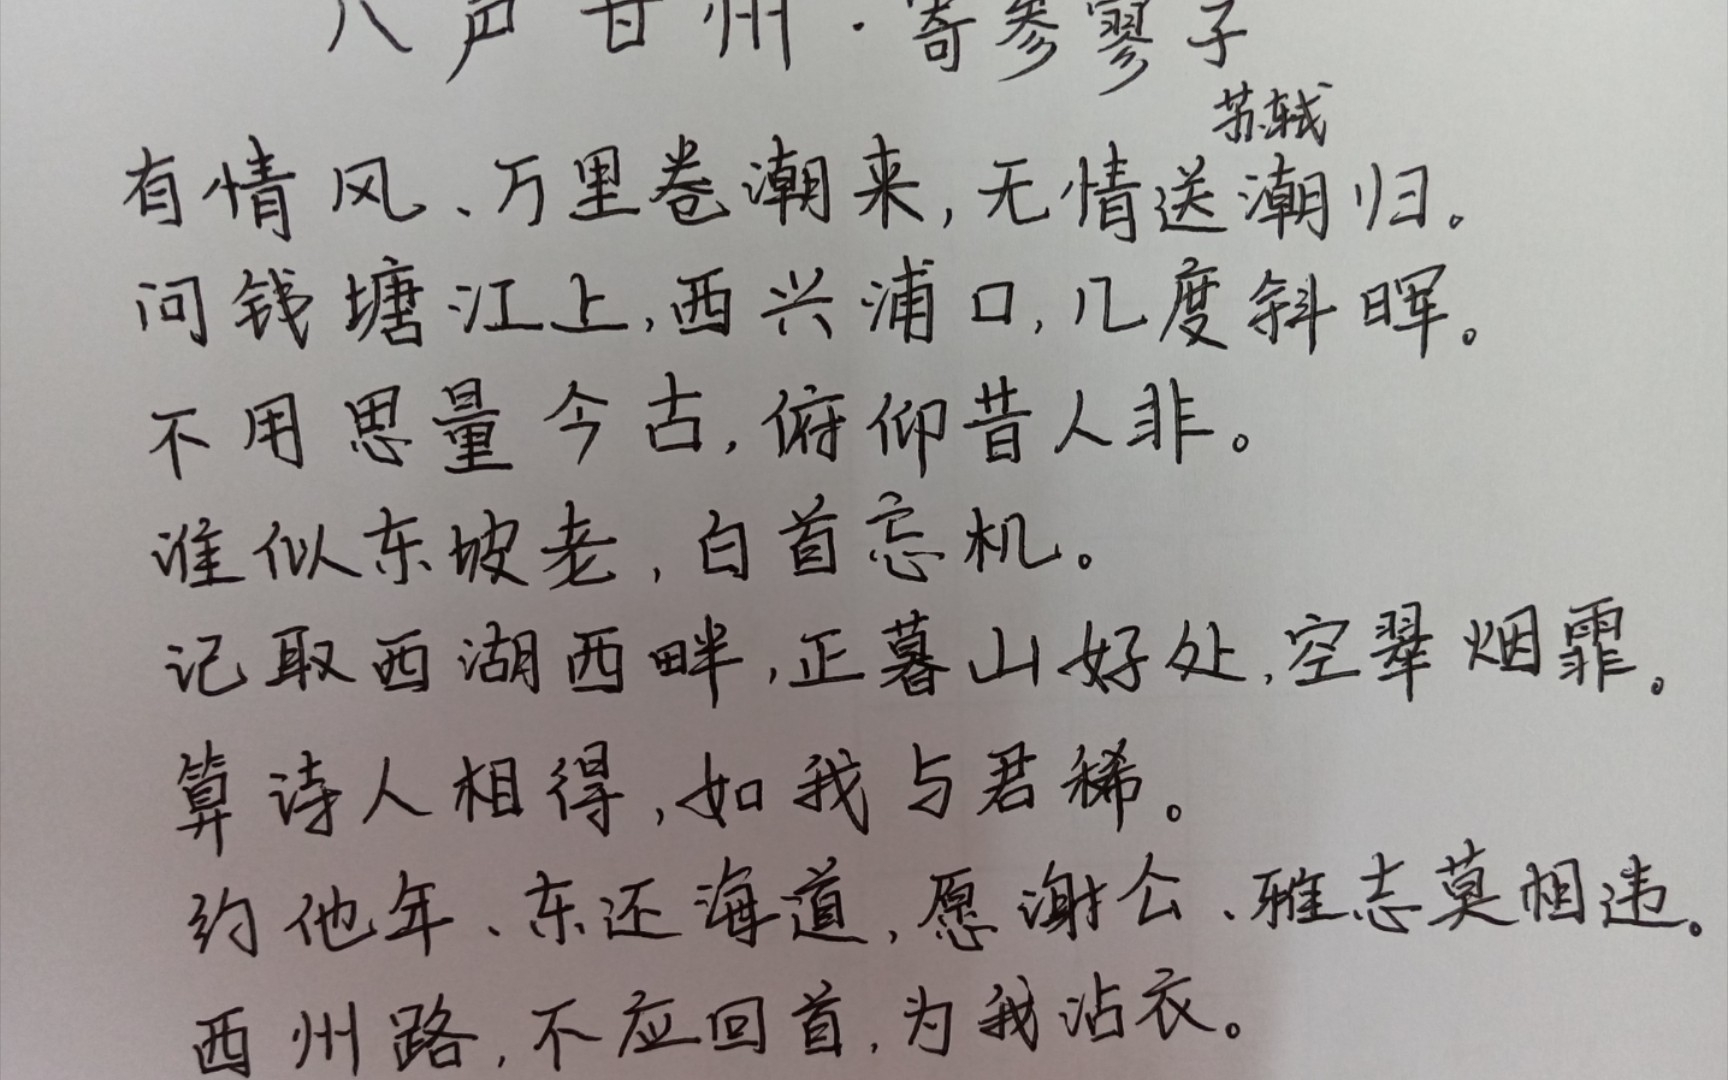 八声甘州·寄参寥子
苏轼
有情风、万里卷潮来,无情送潮归。
问钱塘江上,西兴浦口,几度斜晖。
不用思量今古,俯仰昔人非。
谁似东坡老,白首忘机。
记取西湖西畔,正暮山好处,空翠烟霏。
算诗人相得,如我与君稀。
约他年、东还海道,愿谢公、雅志莫相违。
西州路,不应回首,为我沾衣。